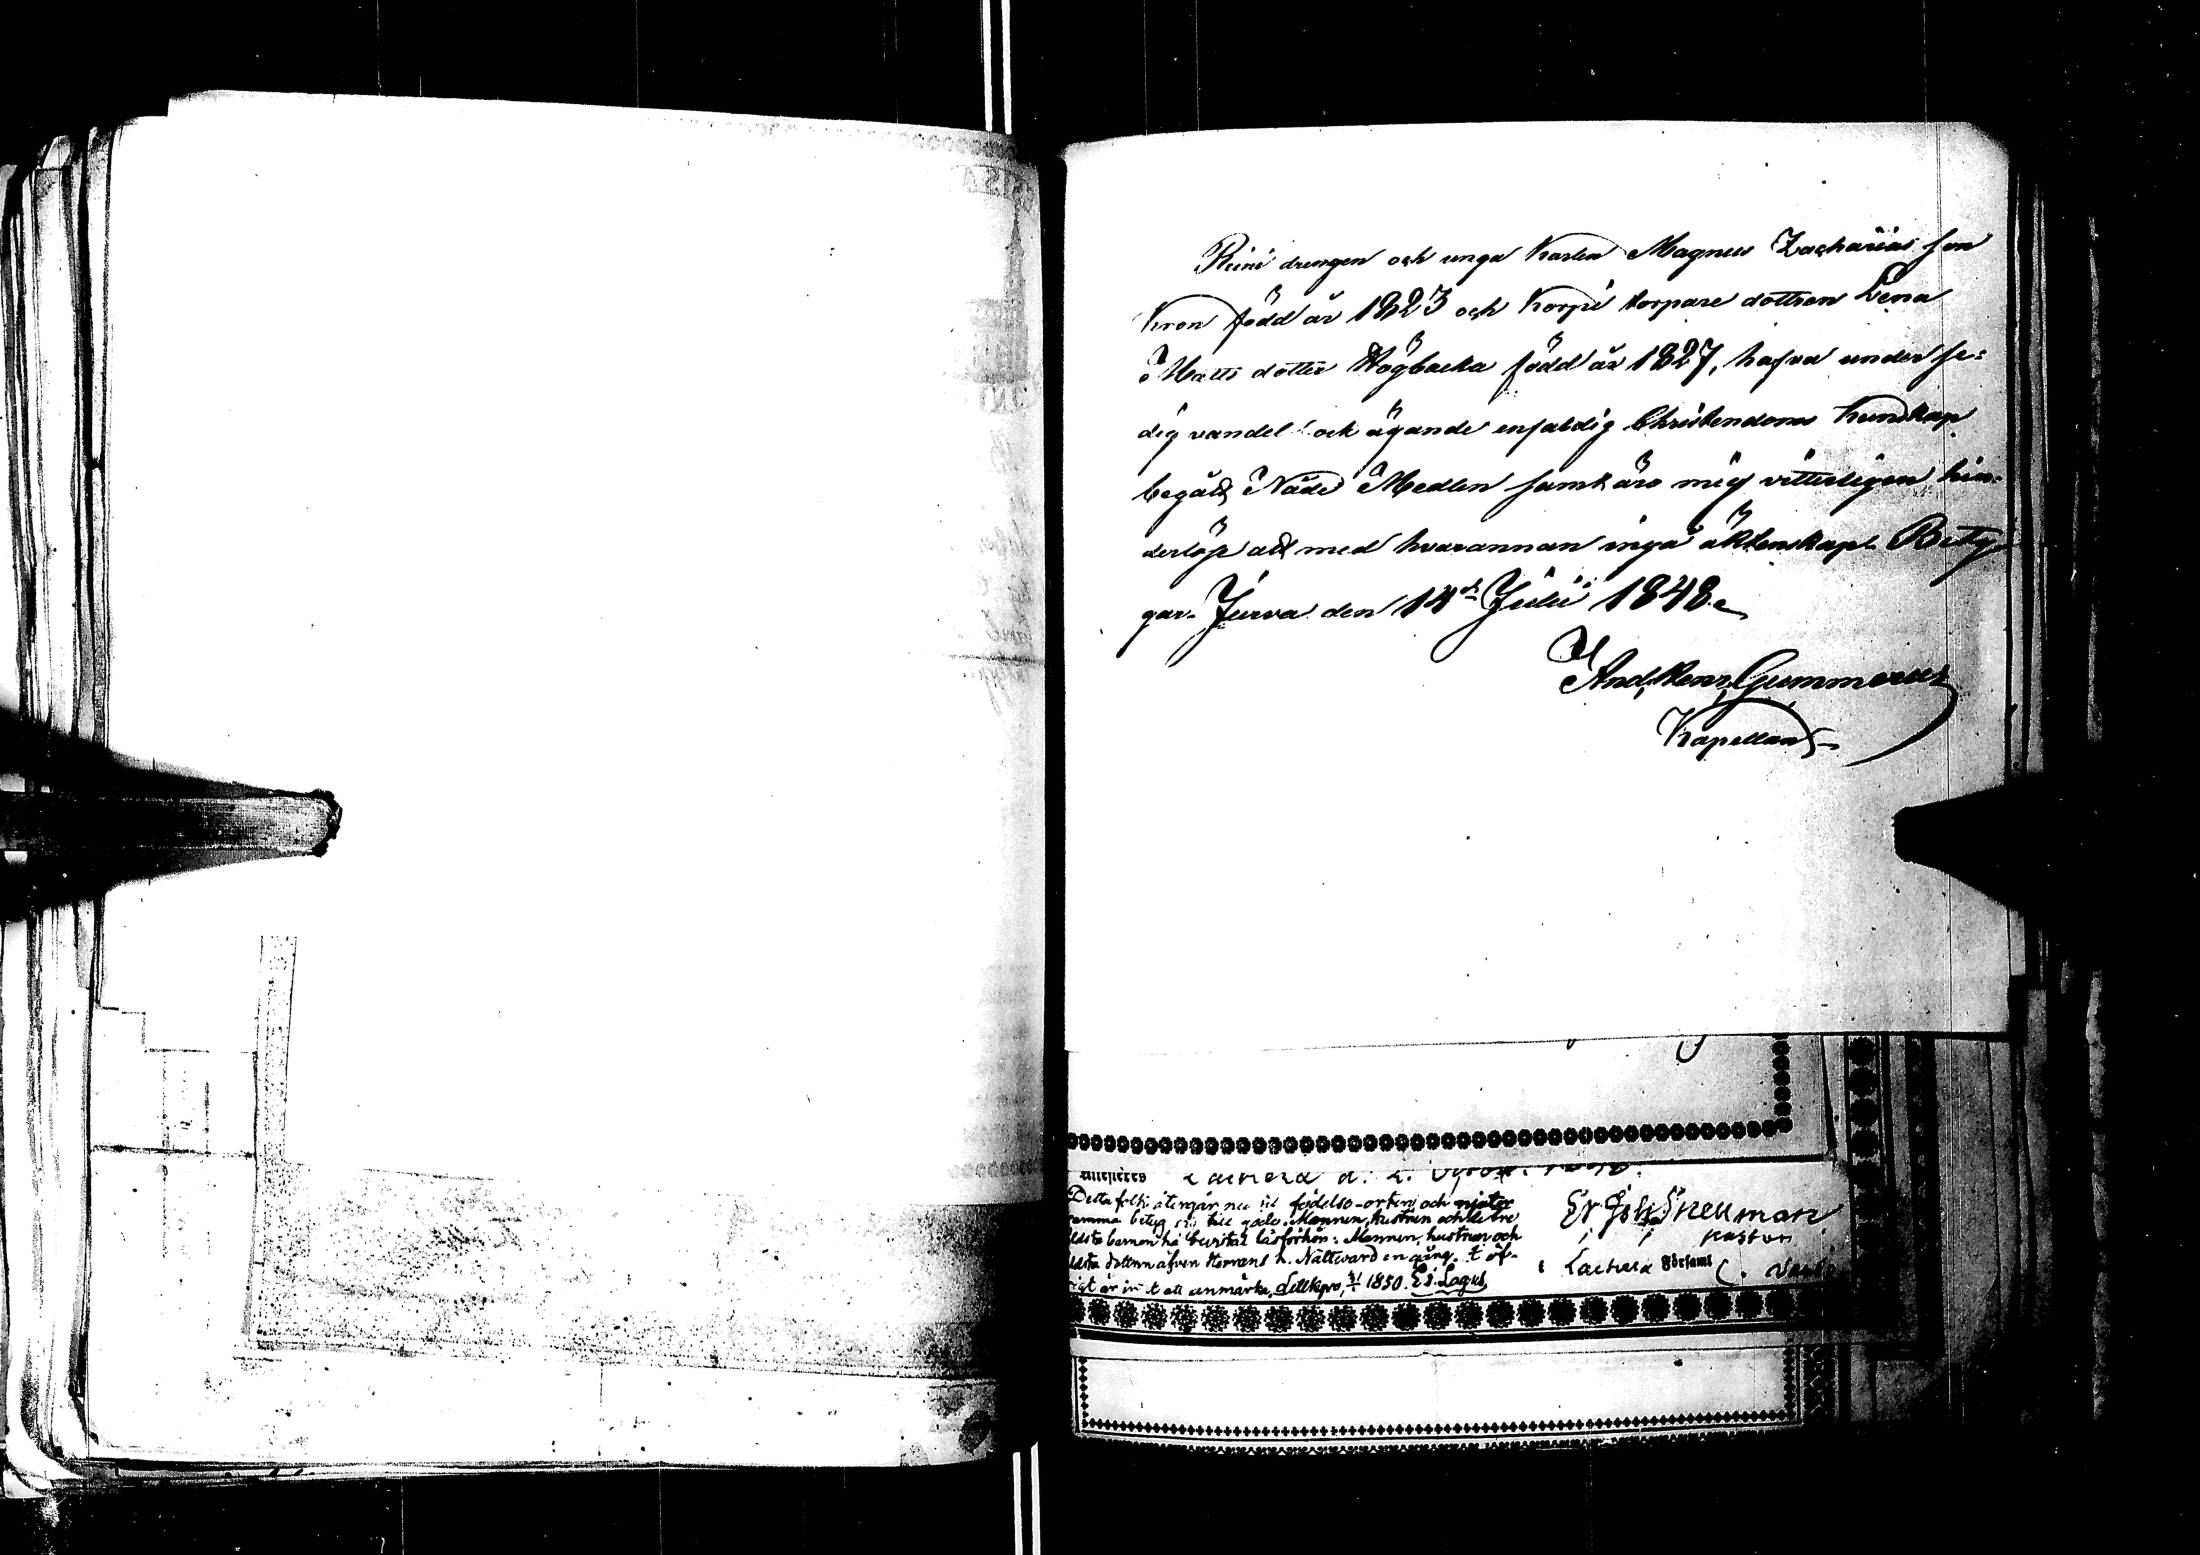 Reini drengen och unga Karlen Magnus Zacharias son
Kron född år 1823 och Korpi torpare dottren Lena
Matts dotter Högbacka född år 1827, hafva under se=
dig vandel och ägande enfaldig Christendoms Kunskap
begådt Nåde Medlen samt äro mig vitterligen hin=
derlöse att med hvarannan ingå äktenskap. Bety=
gar. Jurva den 14de Julii 1848.
And. Henr. Gummerus
Kapellan
Laihela d.
Detta folk återgår nu til födelse-orten och njuter
samma betyg som hit gafs. Mannen, hustrun och de tre
ldsta barnen ha bevistat läsförhören: Mannen, hustrun och
ldsta dottren äfven Herrans h. Nattvard en gång. I öf-
rigt är in t att anmärka, 1850. Ed. Lagus
Er. Joh. Sneuman
Pastor
i Laihela Församl.